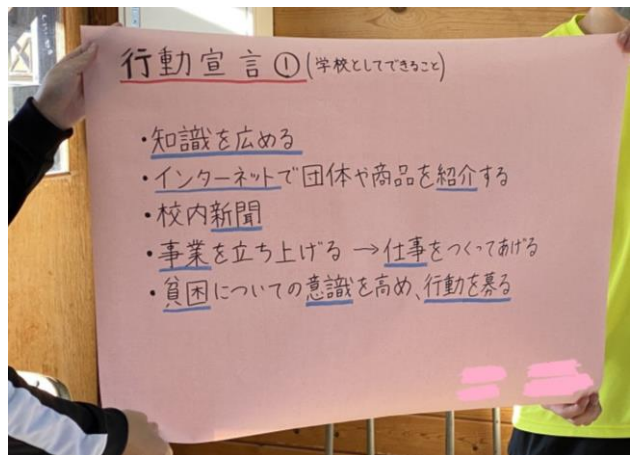 行動宣言①(学校としてできること)
・知識を広める
・インターネットで団体や商品を紹介する
・校内新聞
・事業を立ち上げる →仕事をつくってあげる
・貧困についての意識を高め、行動を募る